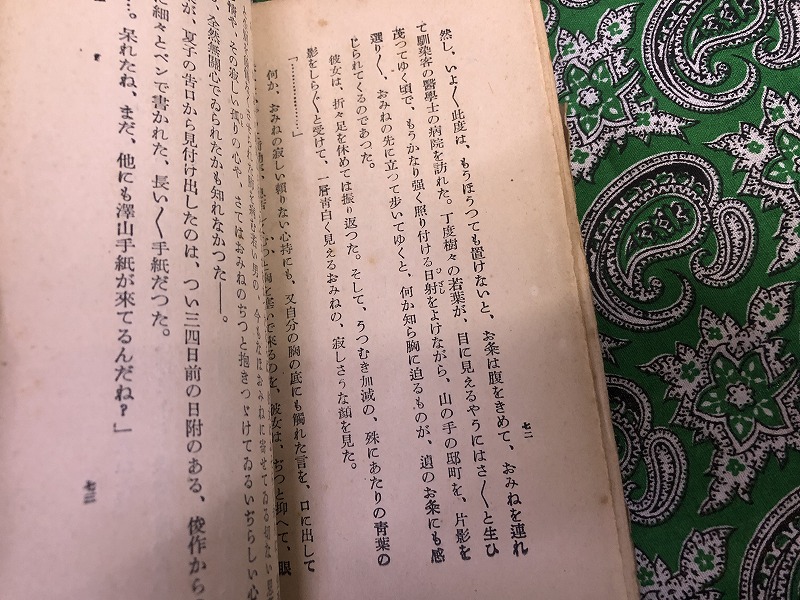 七二
然し、いよ〱此度は、もうほうつても置けないと、お粂は腹をきめて、おみねを連れ
て馴染客の醫學士の病院を訪れた。丁度樹々の若葉が、目に見えるやうにはさ〱と生ひ
茂つてゆく頃で、もうかなり强く照り付ける日射をよけながら、山の手の邸町を、片影を
選り〱、おみねの先に立つて步いてゆくと、何か知ら胸に迫るものが、遉のお粂にも感
じられてくるのであつた。
彼女は、折々足を休めては振り返つた。そして、うつむき加減の、殊にあたりの靑葉の
影をしらぐと受けて、一層靑白く見えるおみねの、寂しさうな顏を見た。
「…………」
何か、おみねの寂しい頼りない心持にも、又自分の胸の底にも觸れた言を、口に出して
つと胸を塞いで來るのを、彼女は、ぢつと抑へて、眼
させられた
若い男の、今もなほおみねに寄せてゐる切ない思
情や、その寂しい獨りの心や、さてはおみねのぢつと抱きつゞけてゐるいぢらしい心
、全然無關心でゐられたかも知れなかつた――。
が、夏子の告口から見付け出したのは、つい三四日前の日附のある、俊作からの
に細々とペンで書かれた、長い〱手紙だつた。
…。呆れたね、まだ、他にも澤山手紙が來てるんだね？」
七三